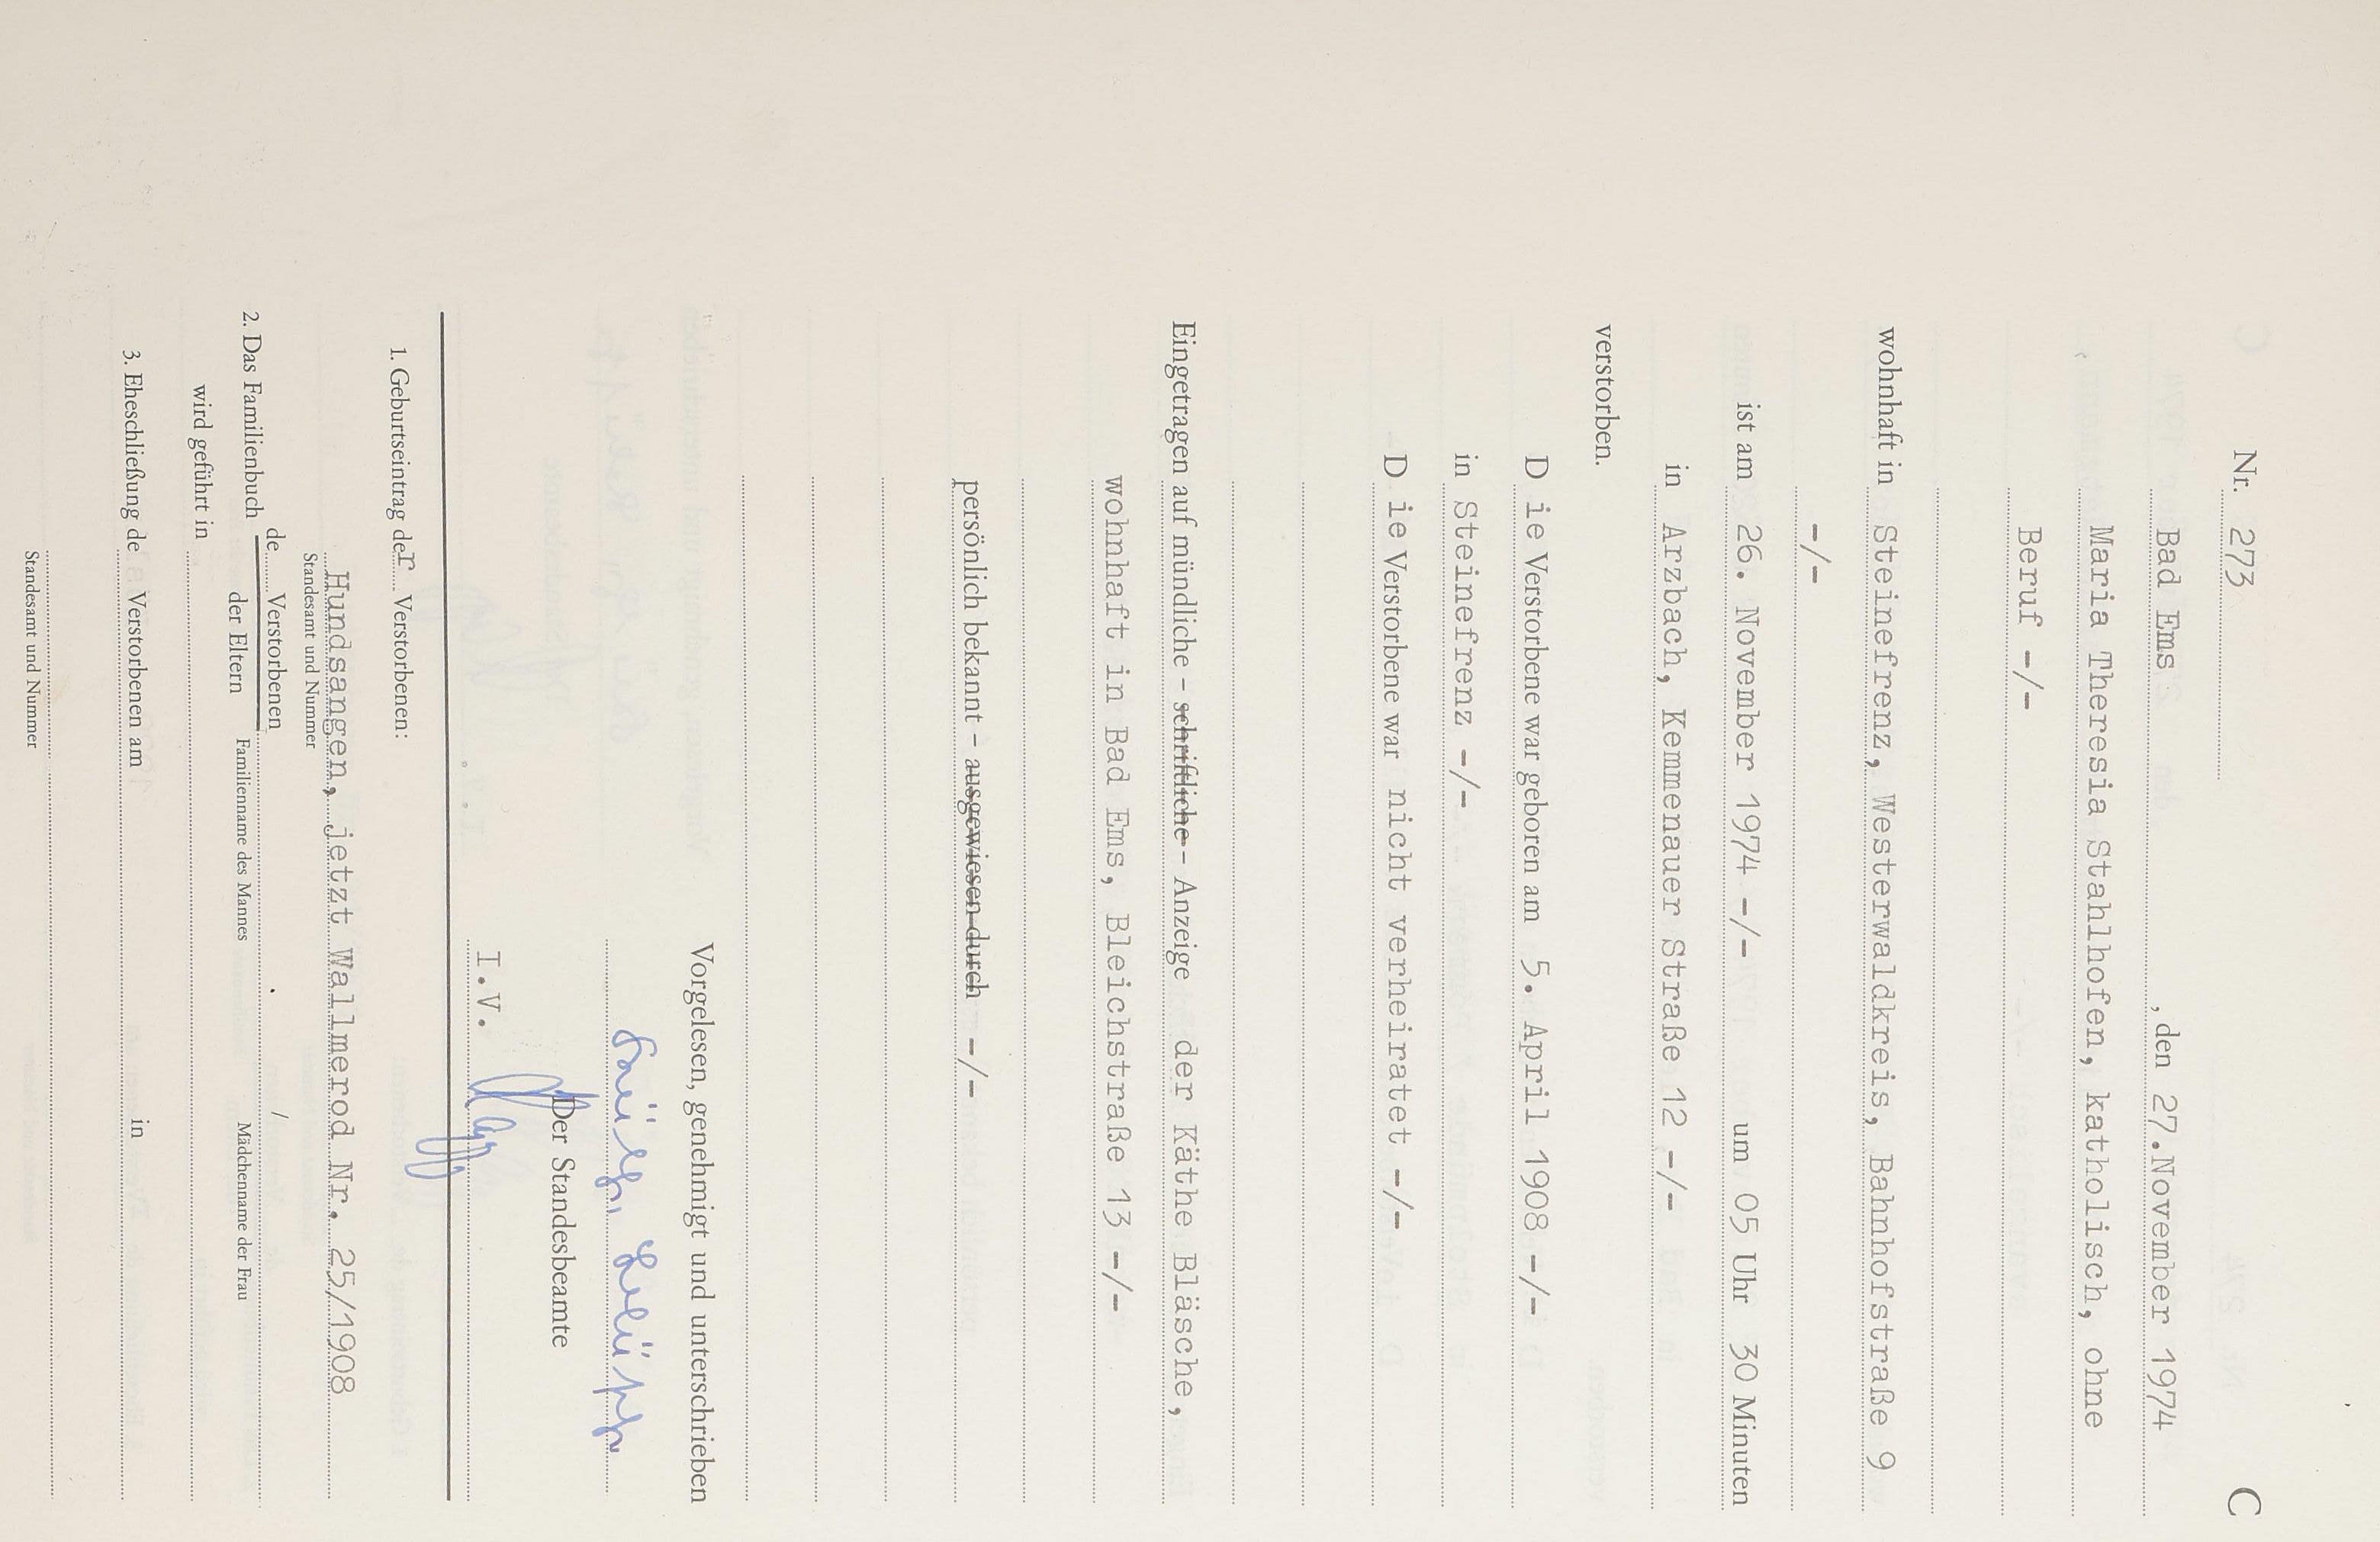 Nr. 273 C
Bad Ems, den 27.November 1974
Maria Theresia Stahlhofen, katholisch, ohne
Beruf -/-
wohnhaft in Steinefrenz, Westerwaldkreis, Bahnhofstraße 9
-/-
ist am 26. November 1974 -/- um 05 Uhr 30 Minuten
in Arzbach, Kemmenauer Straße 12 -/-
verstorben.
Die Verstorbene war geboren am 5. April 1908 -/-
in Steinefrenz -/-
Die Verstorbene war nicht verheiratet -/-
Eingetragen auf mündliche - schriftliche - Anzeige der Käthe Bläsche,
wohnhaft in Bad Ems, Bleichstraße 13 -/-
persönlich bekannt - ausgewiesen durch -/-
Vorgelesen, genehmigt und unterschrieben
Der Standesbeamte
I.V.
1. Geburtseintrag der Verstorbenen:
Hundsangen, jetzt Wallmerod Nr. 25/1908
Standesamt und Nummer
2. Das Familienbuch de Verstorbenen /
der Eltern Familienname des Mannes Mädchenname der Frau
wird geführt in
3. Eheschließung de Verstorbenen am in
Standesamt und Nummer